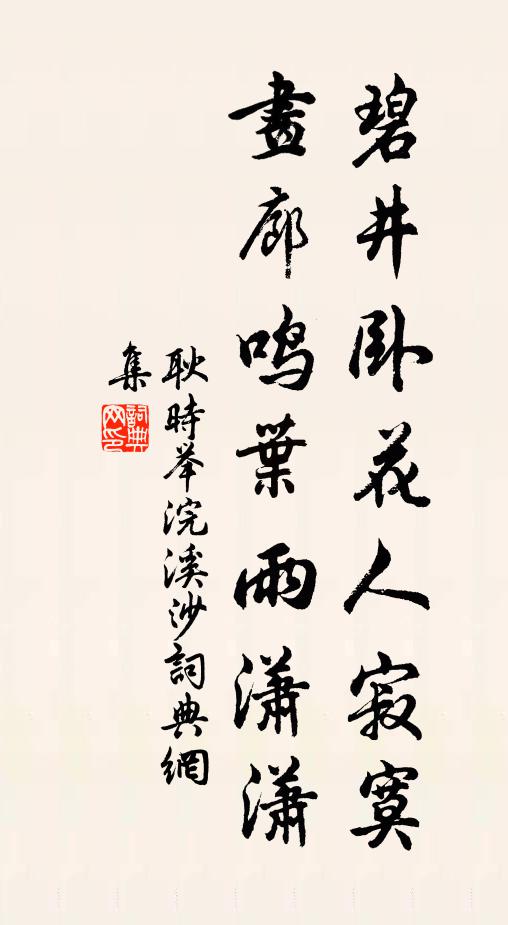 碧井卧花人寂寞
畫廊鳴葉雨瀟瀟
耿時举浣溪沙詞典網
集
詞典網印